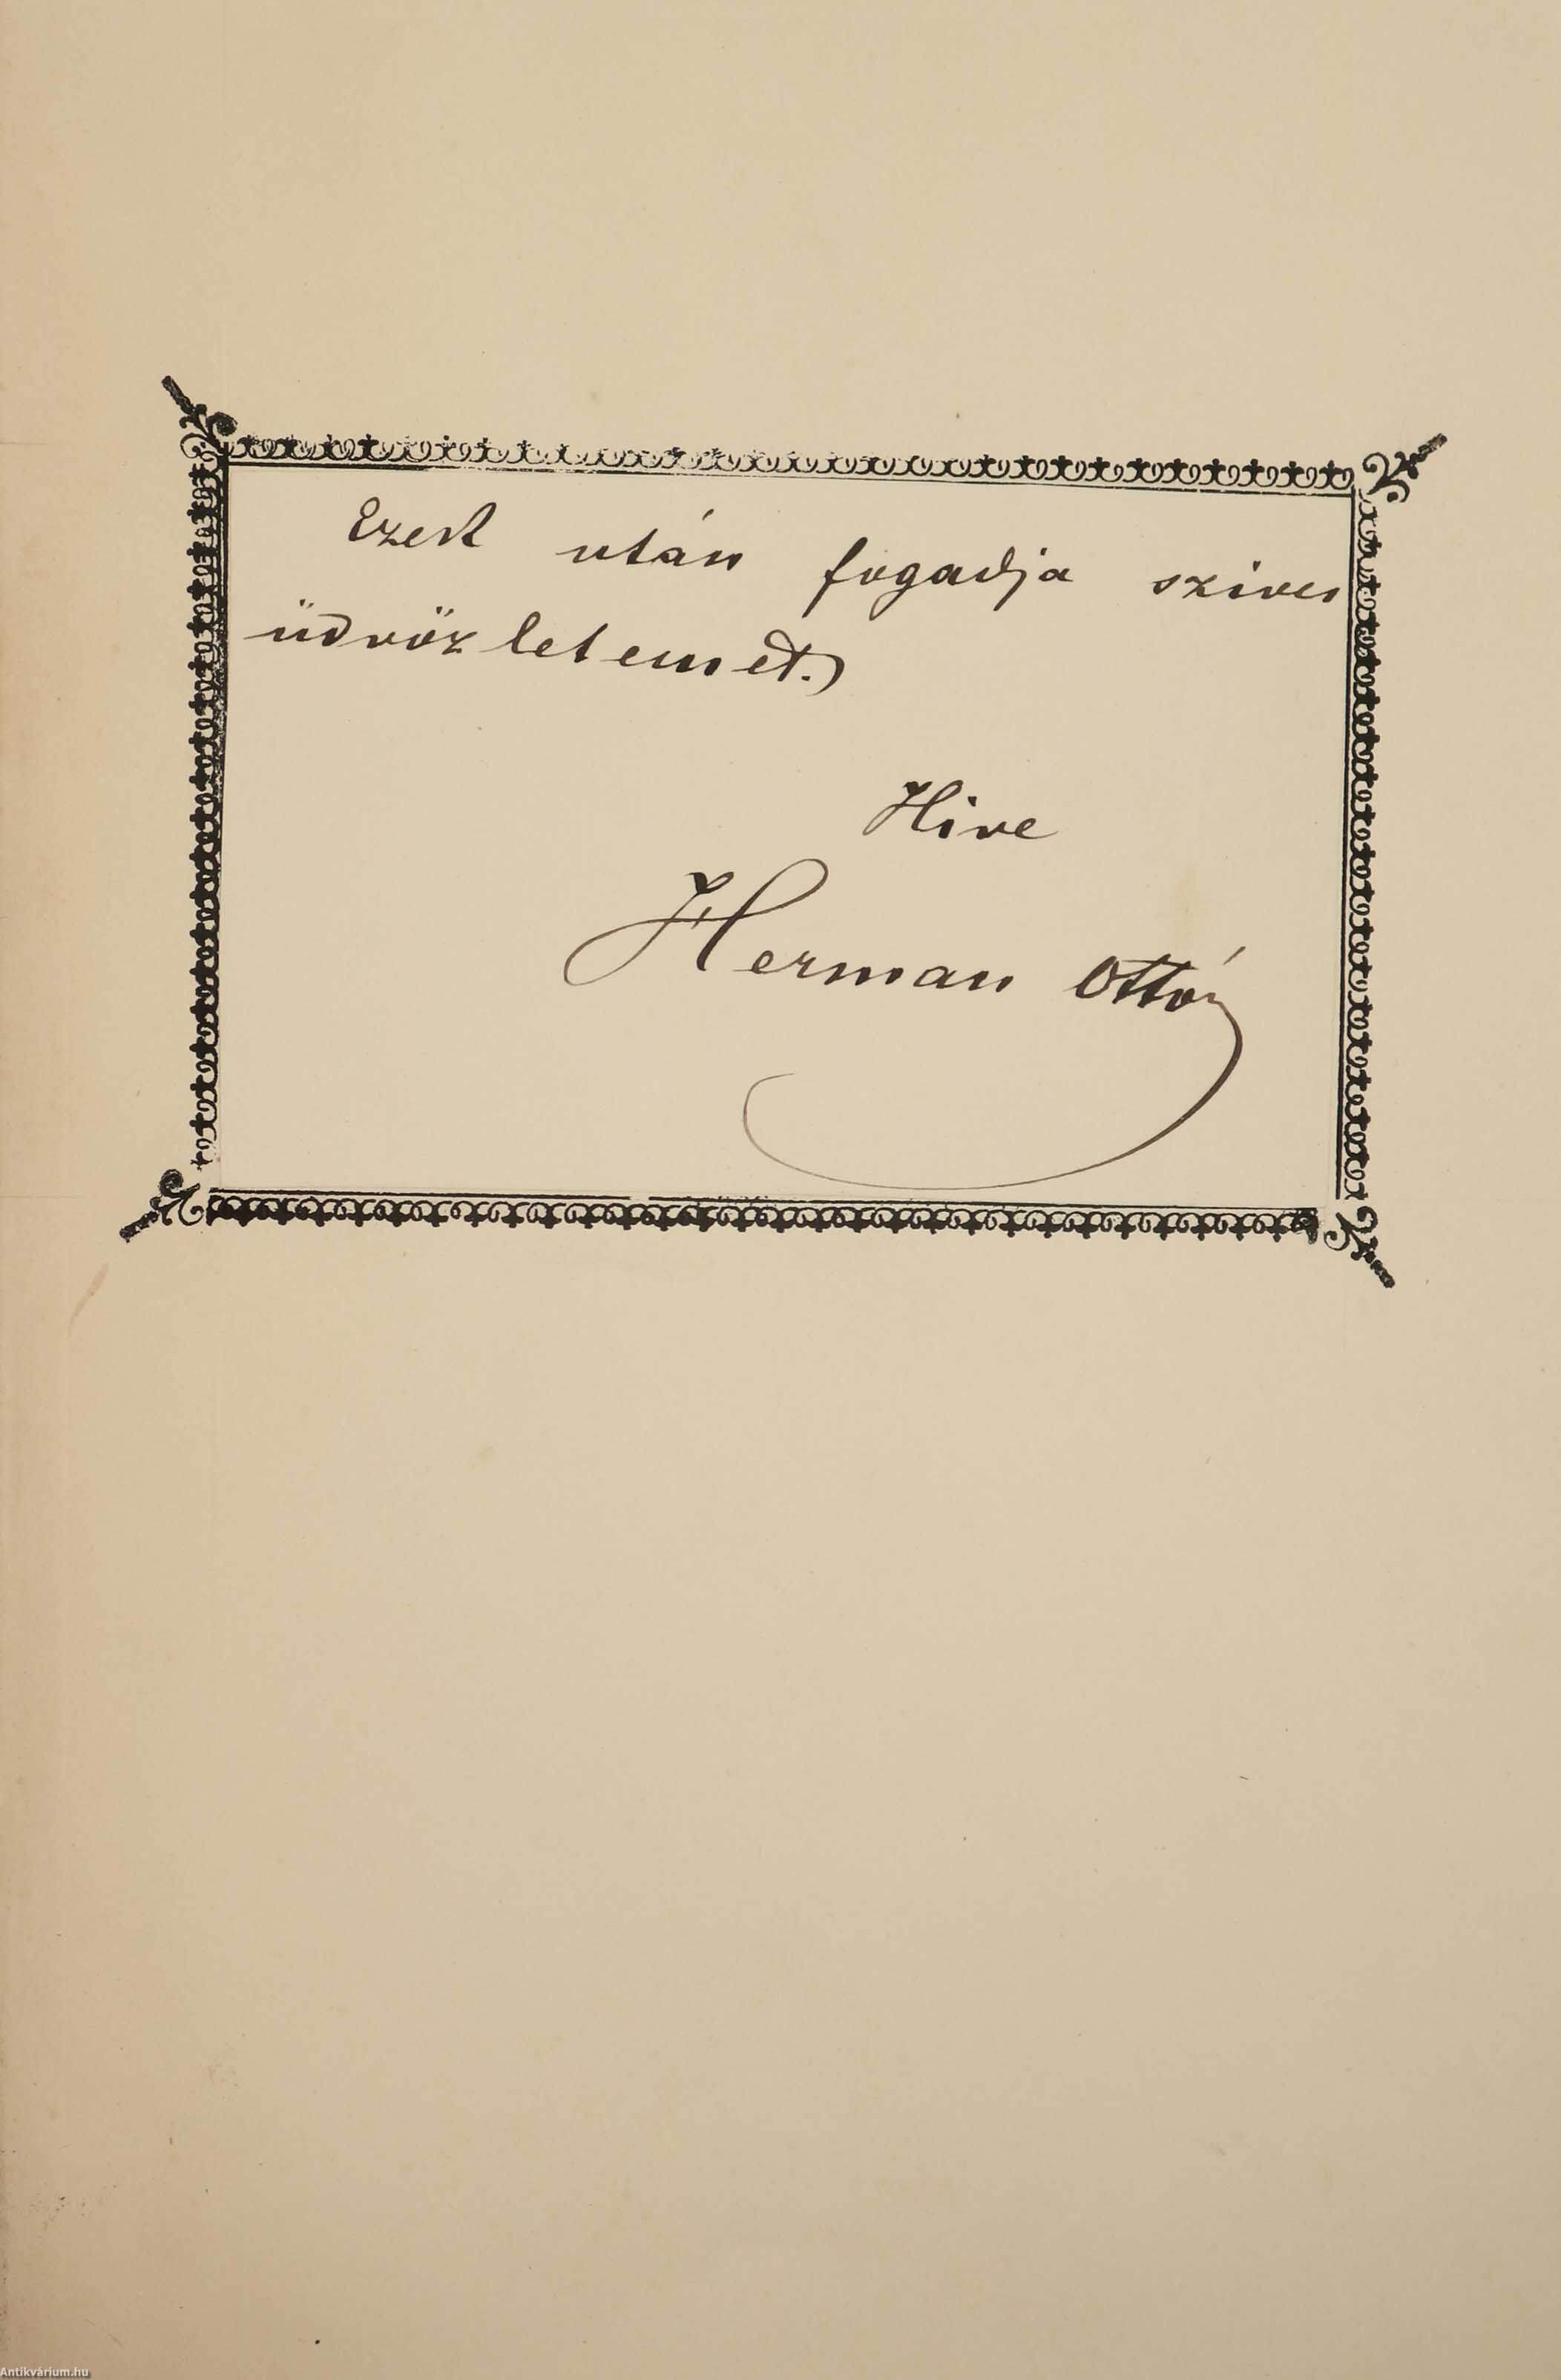 Ezek után fogadja szives
üdvözletemet.
Hive
Herman Ottó
Antikvárium.hu